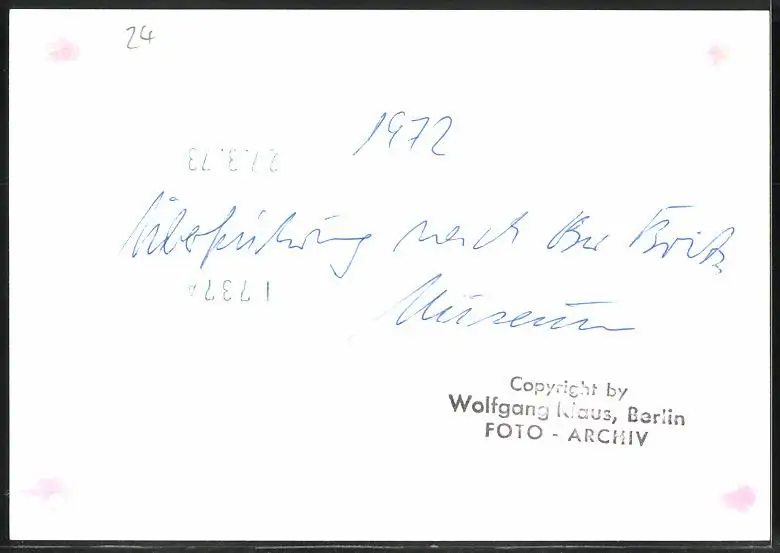 24
1972
27.3.73
Überführung nach Bln Britz
1737A
Museum
Copyright by
Wolfgang Klaus, Berlin
FOTO - ARCHIV